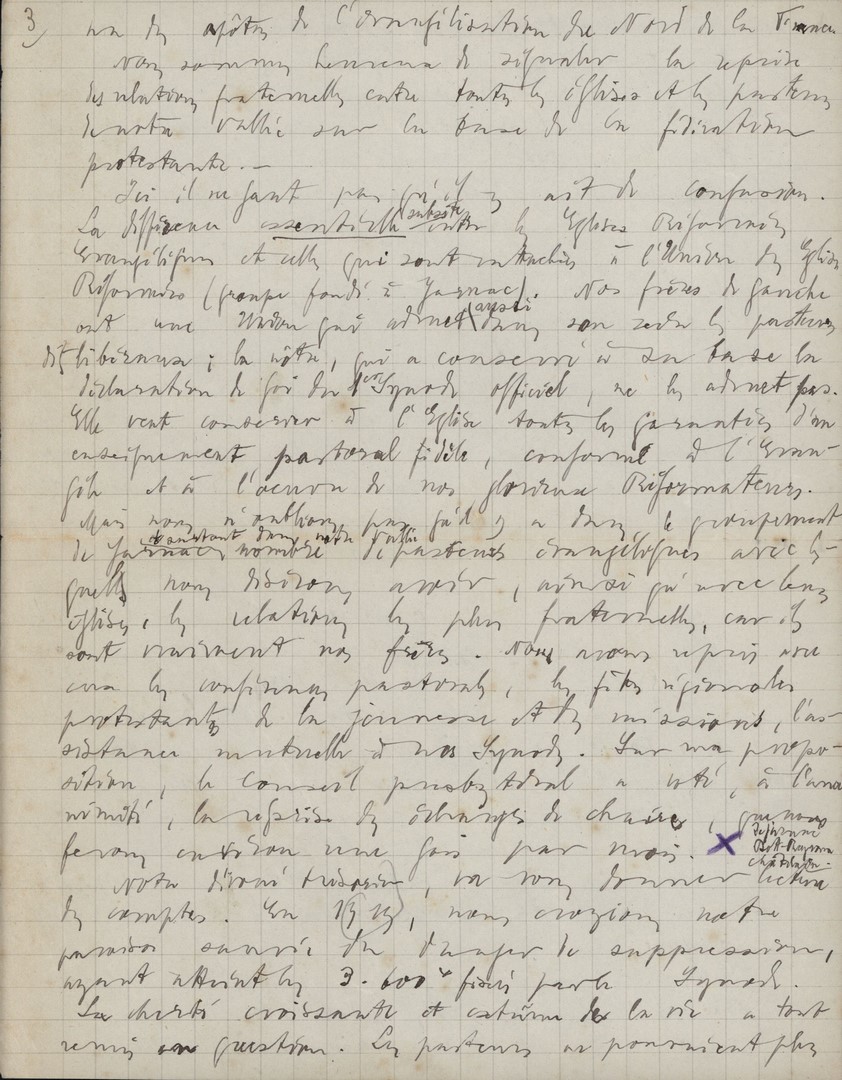 3)
un des apôtres de l'évangélisation du Nord de la France.
Nous sommes heureux de signaler la reprise
des relations fraternelles entre toutes les églises et les pasteurs
de notre vallée sur la base de la fédération
protestante. —
Ici il ne faut pas qu'il y ait de confusion.
La différence essentielle (subsiste) entre les Eglises Réformées
Evangéliques et celles qui sont rattachées à l'Union des Eglises
Réformées (groupe fondé à Jarnac). Nos frères de gauche
ont une Union qui admet (aussi) dans son sein les pasteurs
dits libéraux ; la nôtre, qui a conservé à sa base la
déclaration de foi du 1er Synode officiel, ne les admet pas.
Elle veut conserver à l'Eglise toutes les garanties d'un
enseignement pastoral fidèle, conforme à l'Evan-
gile et à l'œuvre de nos glorieux Réformateurs.
Mais nous n'oublions pas qu'il y a dans le groupement
de Jarnac, constant dans notre vallée
nombre de pasteurs évangéliques avec les-
quels nous désirons avoir, ainsi qu'avec leurs
églises, les relations les plus fraternelles, car ils
sont vraiment nos frères. Nous avons repris avec
eux les conférences pastorales, les fêtes régionales
protestantes de la jeunesse et des missions, l'as-
sistance mutuelle à nos Synodes. Sur ma propo-
sition, le Conseil presbytéral a voté, à l'una
nimité, la reprise des échanges de chaires, que nous
ferons environ une fois par mois. X
Notre dévoué trésorier, va vous donner lecture
des comptes. En 1919, nous croyions notre
paroisse sauvée du danger de suppression,
ayant atteint les 3.600 f fixés par le Synode.
La cherté croissante et continue de la vie a tout
remis en question. Les pasteurs ne pouvaient plus